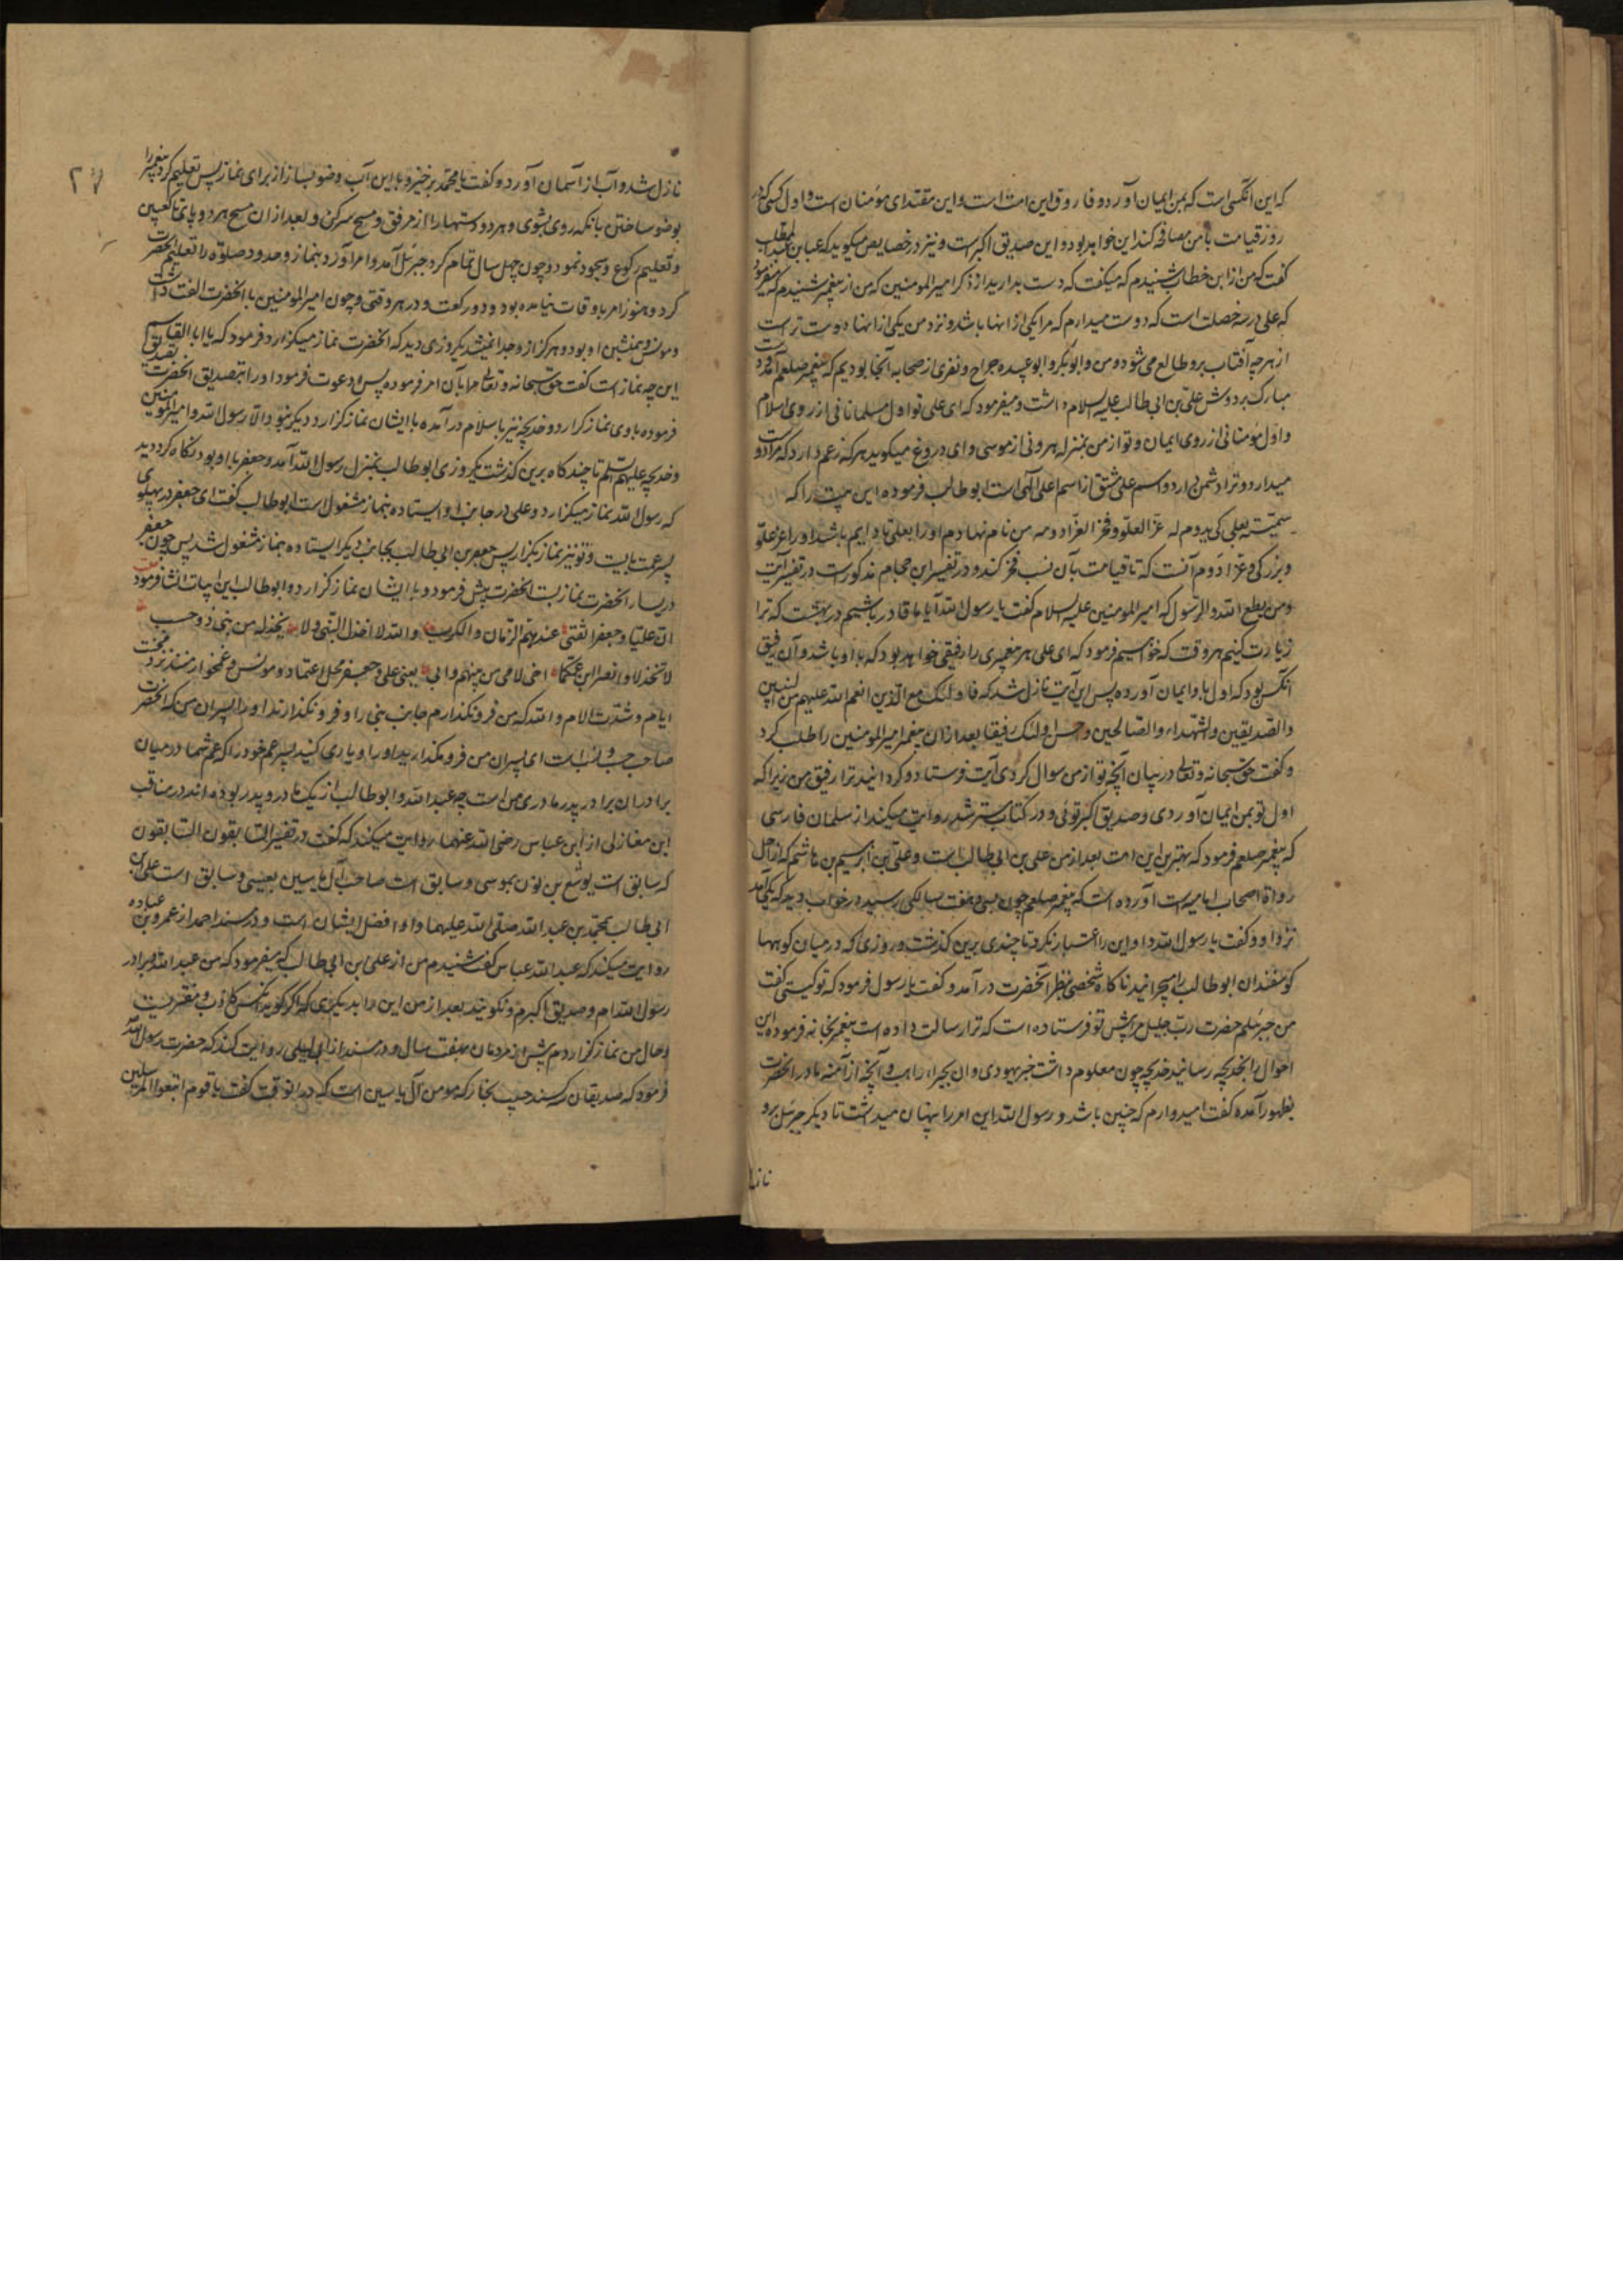 که این آنکسی است که بمن ایمان آورد و فاروق این امت است و این مقتدای مؤمنان است و اول کسی که در
روز قیامت با من مصافحه کند این خواهد بود و این صدیق اکبر است و نیز در خصایص میگوید که عباس بن عبدالمطلب
گفت که من از ابن خطاب شنیدم که میگفت که دست بدارید از ذکر امیرالمومنین که من از پیغمبر شنیدم که میفرمود
که علی در سه خصلت است که دوست میدارم که مرا یکی از آنها باشد و نزد من یکی از آنها دوست تر است
از هر چه آفتاب برو طالع می شود و من و ابوبکر و ابوعبیده جراح و نفری از صحابه آنجا بودیم که پیغمبر صلعم آمد و دست
مبارک بر دوش علی بن ابی طالب علیه السلام داشت و میفرمود که ای علی تو اول مسلمانانی از روی اسلام
و اول مؤمنانی از روی ایمان و تو از من بمنزله هرونی از موسی و ای دروغ میگوید هر که زعم دارد که مرا دوست
میدارد و ترا دشمن دارد و اسم علی مشتق از اسم اعلی الهی است ابوطالب فرموده این بیت را که
سمیته بعلی کی یدوم له عز العلو و فخر العز ادومه من نام نهادم او را بعلی تا دایم باشد او را عز علو
و بزرگی و عز ادوم آنست که تا قیامت بآن نسب فخر کند و در تفسیر ابن حجام مذکور است در تفسیر آیت
ومن یطع الله والرسول که امیرالمومنین علیه السلام گفت یا رسول الله آیا ما قادر باشیم در بهشت که ترا
زیارت کنیم هر وقت که خواسیم فرمود که ای علی هر پیغمبری را رفیقی خواهد بود که با او باشد و آن رفیق
آنکس بود که اول باو ایمان آورده پس این آیت نازل شد که فاولئک مع الذین انعم الله علیهم من النبیین
والصدیقین والشهداء والصالحین وحسن اولئک رفیقا بعد از آن پیغمبر امیرالمومنین را طلب کرد
و گفت حق سبحانه و تعالی در بیان آنچه تو از من سوال کردی آیت فرستاد و گردانید ترا رفیق من زیرا که
اول تو بمن ایمان آوردی و صدیق اکبر توئی و در کتاب مسترشد روایت میکند از سلمان فارسی
که پیغمبر صلعم فرمود که بهترین این امت بعد از من علی بن ابی طالب است و علی بن ابراهیم بن هاشم که از اجل
رواة اصحاب امامیه است آورده است که پیغمبر صلعم چون بسی و هفت سالگی رسید در خواب دید که یکی آمد
نزد او و گفت یا رسول الله و او این را اعتبار نکرد تا چندی برین گذشت و روزی که در میان کوهها
گوسفندان ابوطالب را میچرانید ناگاه شخصی بنظر آنحضرت در آمد و گفت یا رسول فرمود که تو کیستی گفت
من جبرئیلم حضرت رب جلیل مرا پیش تو فرستاده است که ترا رسالت داده است پیغمبر بخانه فرموده این
احوال را بخدیجه رسانید خدیجه چون معلوم داشت خبر یهودی و ان بحیراء راهب و آنچه از آمنه مادر آنحضرت
بظهور آمده گفت امیدوارم که چنین باشد و رسول الله این امر را پنهان میداشت تا دیگر جبرئیل برو
نازل
۲۷
نازل شد و آب از آسمان آورد و گفت یا محمد برخیز و با این آب وضو بساز از برای نماز پس تعلیم کرد پیغمبر را
بوضو ساختن بآنکه روی بشوی و هر دو دستها را از مرفق و مسح سر کن و بعد از آن مسح هر دو پا تا کعبین
و تعلیم رکوع و سجود نمود و چون چهل سال تمام کرد جبرئیل آمد و امر آورد بنماز و حدود صلوة را تعلیم آنحضرت
کرد و هنوز امر باوقات نیامده بود و دو رکعت و در هر وقتی و چون امیرالمومنین با آنحضرت الفت داشت
و مونس و همنشین او بود و هرگز از و جدا نمیشد یکروزی دید که آنحضرت نماز میگزارد فرمود که یا ابا القاسم
این چه نماز است گفت حق سبحانه و تعالی مرا بآن امر فرموده پس او دعوت فرمود او را بتصدیق آنحضرت
فرموده با وی نماز گزارد و خدیجه نیز باسلام در آمده با ایشان نماز گزارد و دیگر نبود الا رسول الله و امیرالمومنین
و خدیجه علیهم السلم تا چندگاه برین گذشت یکروزی ابوطالب بمنزل رسول الله آمد و جعفر با او بود نگاه کرد دید
که رسول الله نماز میگزارد و علی در جانب او ایستاده بنماز مشغول است ابوطالب گفت ای جعفر در پهلوی
پسر عمت بایست و تو نیز نماز بگزار پس جعفر بن ابی طالب بجانب دیگر ایستاده بنماز مشغول شد پس چون جعفر
در یسار آنحضرت نماز بست آنحضرت پیش فرمود و با ایشان نماز گزارد و ابوطالب این ابیات انشا فرمود
ان علیا وجعفرا ثقتی عند مهم الزمان والکرب والله لا اخذل النبی ولا یخذله من بنی ذو حسب
لا تخذلا وانصرا ابن عمکما اخی لامی من بینهم وابی یعنی علی و جعفر محل اعتماد و مونس و غمخوار منند نزد محنت
ایام و شدت الام والله که من فرو نگذارم جانب نبی را و فرو نگذارند او را پسران من که آنحضرت
صاحب حسب و نسب است ای پسران من فرو مگذارید او را و یاری کنید پسر عم خود را که عم شما در میان
برادران برادر پدر مادری من است چه عبدالله و ابوطالب از یک مادر و پدر بوده اند در مناقب
ابن مغازلی از ابن عباس رضی الله عنهما روایت میکند که گفت در تفسیر السابقون السابقون
که سابق است یوشع بن نون بموسی و سابق است صاحب آل یاسین بعیسی و سابق است علی بن
ابی طالب بمحمد بن عبدالله صلی الله علیهما و او افضل ایشان است و در مسند احمد از عمرو بن عباده
روایت میکند که عبدالله عباس گفت شنیدم من از علی بن ابی طالب که میفرمود که من عبدالله برادر
رسول الله ام و صدیق اکبرم و نگویند بعد از من این را بدیگری که اگر گوید آنکس کاذب و مفتریست
و حال من نماز گزاردم پیش از مردمان بهفت سال و در مسند از ابی لیلی روایت کند که حضرت رسول الله
فرمود که صدیقان سه اند حبیب نجار که مومن آل یاسین است که در آنوقت گفت یا قوم اتبعوا المرسلین